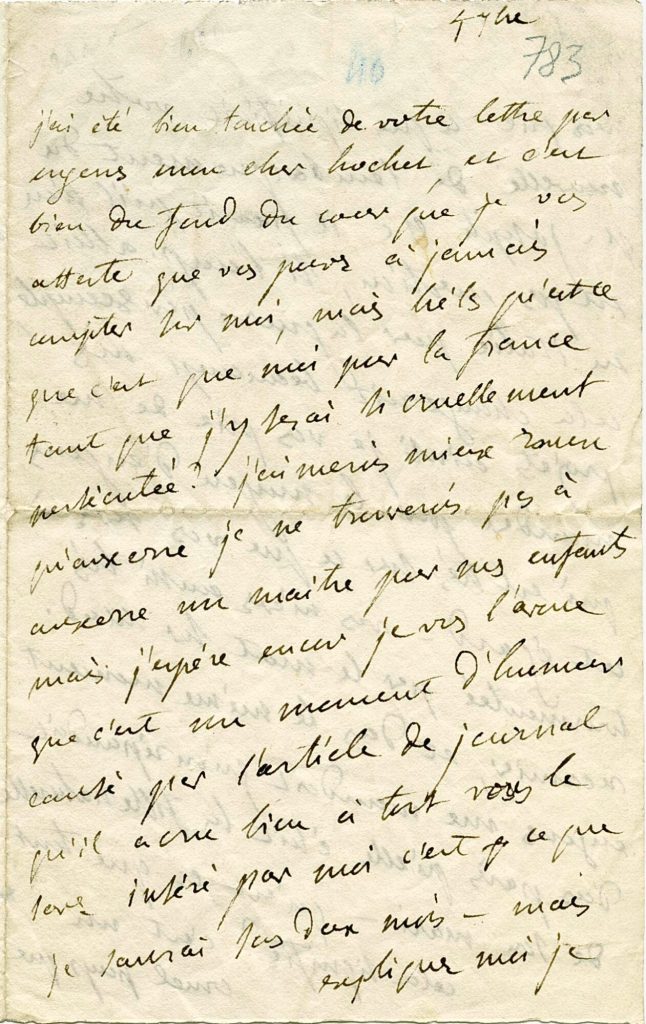 4 7bre
783
110
j'ai été bien touchée de votre lettre par
eugene mon cher hochet, et c'est
bien du fond du cœur que je vous
atteste que vous pouvez à jamais
compter sur moi, mais hélas qu'est ce
que c'est que moi pour la france
tant que j'y serai si cruellement
persécutée? j'aimerois mieux rouen
qu'auxerre je ne trouverois pas à
auxerre un maitre pour mes enfants
mais j'espére encor je vous l'avoue
que c'est un moment d'humeur
causé par l'article de journal
qu'il a cru bien à tort vous le
savez inséré par moi c'est ce que
je saurai sous deux mois – mais
expliquez moi je